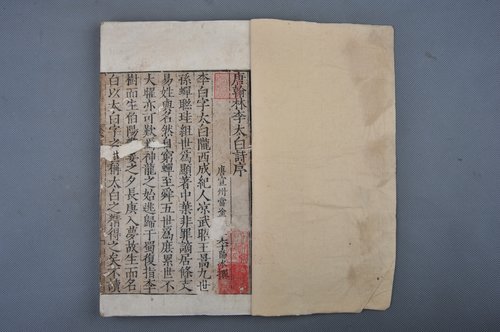 唐翰林李太白詩序
唐宣州當塗 李陽冰撰
李白字太白隴西成紀人涼武昭王暠九世
孫蟬聯珪組世爲顯著中葉非罪謫居條支
易姓與名然自窮蟬至舜五世爲庶累世不
大曜亦可歎焉神龍之始逃歸于蜀復指李
樹而生伯陽驚姜之夕長庚入夢故生而名
白以太白字之世稱太白之精得之矣不讀